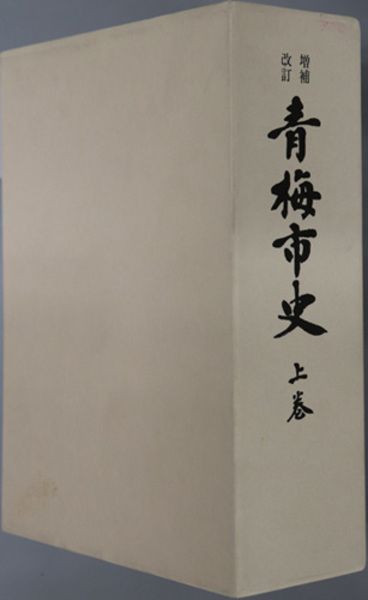 増補
改訂
青梅市史
上巻